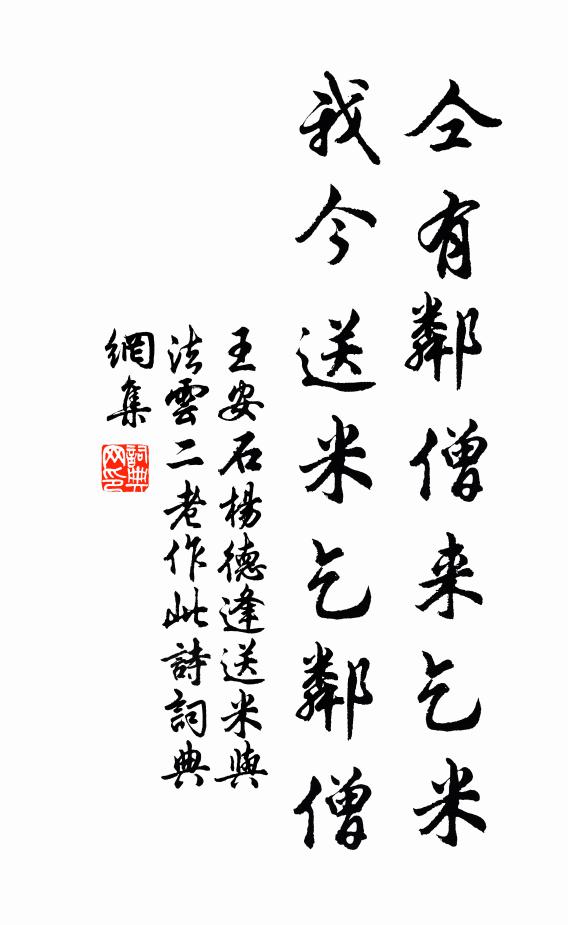 仝有鄰僧来乞米
我今送米乞鄰僧
王安石楊德逢送米與
法雲二老作此詩詞典
網集
詞典
网印